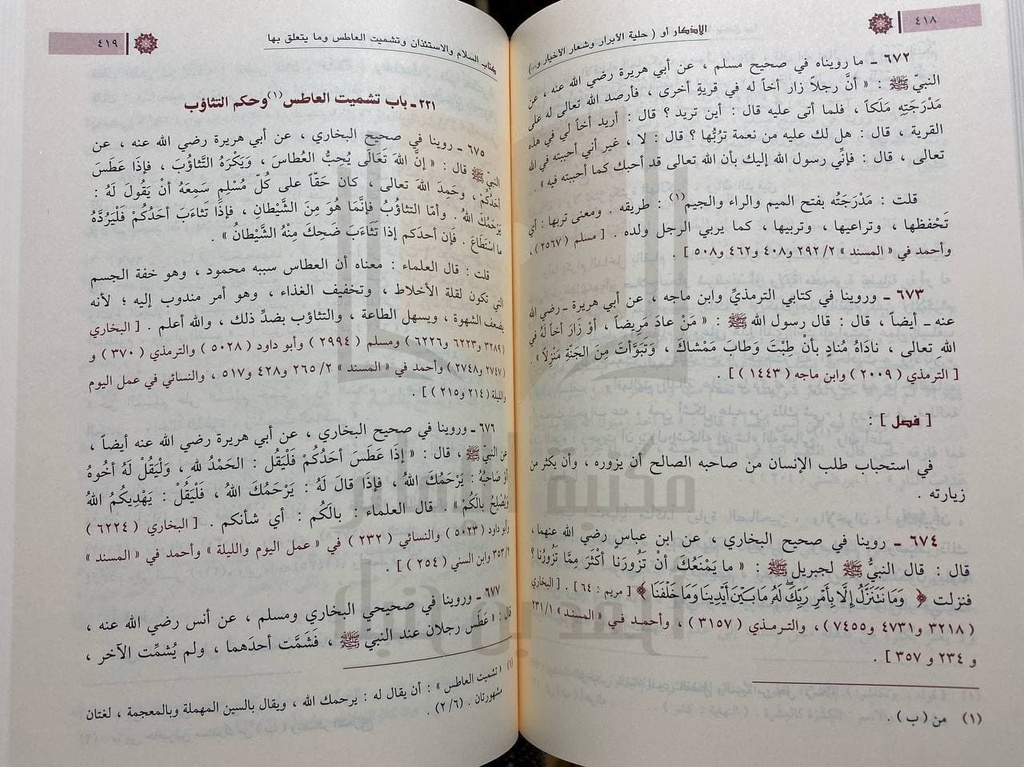 ٤١٨
الأذكار أو ( حلية الأبرار وشعار الأخيار و..)
٦٧٢ ـ ما رويناه في صحيح مسلم ، عن أبي هريرة رضي الله عنه ، عن
النبيّ ﷺ : « أنَّ رجلاً زار أخاً له في قريةٍ أخرى ، فأرصد الله تعالى له على
مَدْرَجَتِهِ مَلَكاً ، فلما أتى عليه قال : أين تريد ؟ قال : أريد أخاً لي في هذه
القرية ، قال : هل لك عليه من نعمة تَرُبُّها ؟ قال : لا ، غير أني أحببته في الله
تعالى ، قال : فإنِّي رسول الله إليك بأن الله تعالى قد أحبك كما أحببته فيه » .
قلت : مَدْرَجَتُه بفتح الميم والراء والجيم(١) : طريقه . ومعنى تربها : أي
تَحْفظها ، وتراعيها ، وتربيها ، كما يربي الرجل ولده . [ مسلم ( ٢٥٦٧) ،
وأحمد في « المسند » ٢٩٢/٢ و٤٠٨ و٤٦٢ و٥٠٨ ] .
٦٧٣ ـ وروينا في كتابي الترمذيِّ وابن ماجه ، عن أبي هريرة ـ رضي الله
عنه ـ أيضاً ، قال : قال رسول الله ﷺ : « مَنْ عادَ مَرِيضاً ، أوْ زَارَ أخاً لَهُ في
الله تعالى ، نادَاهُ مُنادٍ بأنْ طِبْتَ وَطابَ مَمْشاكَ ، وَتَبَوَّأتَ مِنَ الجَنَّةِ مَنْزِلاً » .
[ الترمذي ( ٢٠٠٩ ) وابن ماجه ( ١٤٤٣ ) ] .
[ فصل ] :
في استحباب طلب الإنسان من صاحبه الصالح أن يزوره ، وأن يكثر من
زيارته .
٦٧٤ ـ روينا في صحيح البخاري ، عن ابن عباسٍ رضي الله عنهما ،
قال : قال النبيُّ ﷺ لجبريل ﷺ : « ما يَمْنَعُكَ أنْ تَزُورَنا أكْثَرَ مِمَّا تَزُورُنا ؟
فنزلت ﴿ وَمَا نَتَنَزَّلُ إِلَّا بِأَمْرِ رَبِّكَ لَهُ مَا بَيْنَ أَيْدِينَا وَمَا خَلْفَنَا ﴾ [ مريم : ٦٤ ] . [ البخاري
( ٣٢١٨ و٤٧٣١ و٧٤٥٥ ) ، والترمذي ( ٣١٥٧ ) ، وأحمد في « المسند » ٢٣١/١
و ٢٣٤ و ٣٥٧ ] .
(١) من ( ب ) .
كتاب السلام والاستئذان وتشميت العاطس وما يتعلق بها
٤١٩
٢٢١ ـ باب تشميت العاطس(١) وحكم التثاؤب
٦٧٥ ـ روينا في صحيح البخاري ، عن أبي هريرة رضي الله عنه ، عن
النبيّ ﷺ قال : « إنَّ اللهَ تَعَالَى يُحِبُّ العُطاسَ ، وَيَكْرَهُ التَّثاؤُبَ ، فإذَا عَطَسَ
أحَدُكُم ، وحَمِدَ اللهَ تعالى ، كان حَقّاً على كُلِّ مُسْلِمٍ سَمِعَهُ أنْ يَقُولَ لَهُ :
يَرْحَمُكَ اللهُ . وأمّا التَّثاؤُبُ فإنَّمَا هُوَ مِنَ الشَّيْطانِ ، فإذَا تَثاءَبَ أحَدُكُمْ فَلْيَرُدَّهُ
ما اسْتَطَاعَ . فإن أحدَكُم إذَا تَثاءَبَ ضَحِكَ مِنْهُ الشَّيْطانُ » .
قلت : قال العلماء : معناه أن العطاس سببه محمود ، وهو خفة الجسم
التي تكون لقلة الأخلاط ، وتخفيف الغذاء ، وهو أمر مندوب إليه ؛ لأنه
يضعف الشهوة ، ويسهل الطاعة ، والتثاؤب بضدِّ ذلك ، والله أعلم . [ البخاري
( ٣٢٨٩ و٦٢٢٣ و٦٢٢٦ ) ومسلم ( ٢٩٩٤ ) وأبو داود ( ٥٠٢٨ ) والترمذي ( ٣٧٠ ) و
( ٢٧٤٧ و٢٧٤٨ ) وأحمد في « المسند » ٢٦٥/٢ و٤٢٨ و٥١٧ ، والنسائي في عمل اليوم
والليلة ( ٢١٤ و٢١٥ ) ] .
٦٧٦ ـ وروينا في صحيح البخاري ، عن أبي هريرة رضي الله عنه أيضاً ،
عن النبيّ ﷺ ، قال : « إذَا عَطَسَ أحَدُكُمْ فَلْيَقُلْ : الحَمْدُ لله ، وَلْيَقُلْ لَهُ أخُوهُ
أوْ صَاحِبُهُ : يَرْحَمُكَ اللهُ ، فإذَا قالَ لَهُ : يَرْحَمُكَ اللهُ ، فَلْيَقُلْ : يَهْدِيكُمُ اللهُ
وَيُصْلِحُ بالَكُمْ » . قال العلماء : بالَكُم : أي شأنكم . [ البخاري ( ٦٢٢٤ )
وأبو داود ( ٥٠٢٣ ) والنسائي ( ٢٣٢ ) في « عمل اليوم والليلة » وأحمد في « المسند »
٣٥٣/٢ وابن السني ( ٢٥٤ ) ] .
٦٧٧ ـ وروينا في صحيحي البخاري ومسلم ، عن أنس رضي الله عنه ،
قال : « عَطَس رجلان عند النبيّ ﷺ ، فشَمَّت أحدَهما ، ولم يُشمِّت الآخر ،
(١) « تشميت العاطس » : أن يقال له : يرحمك الله ، ويقال بالسين المهملة وبالمعجمة ، لغتان
مشهورتان . (٢/٦) .